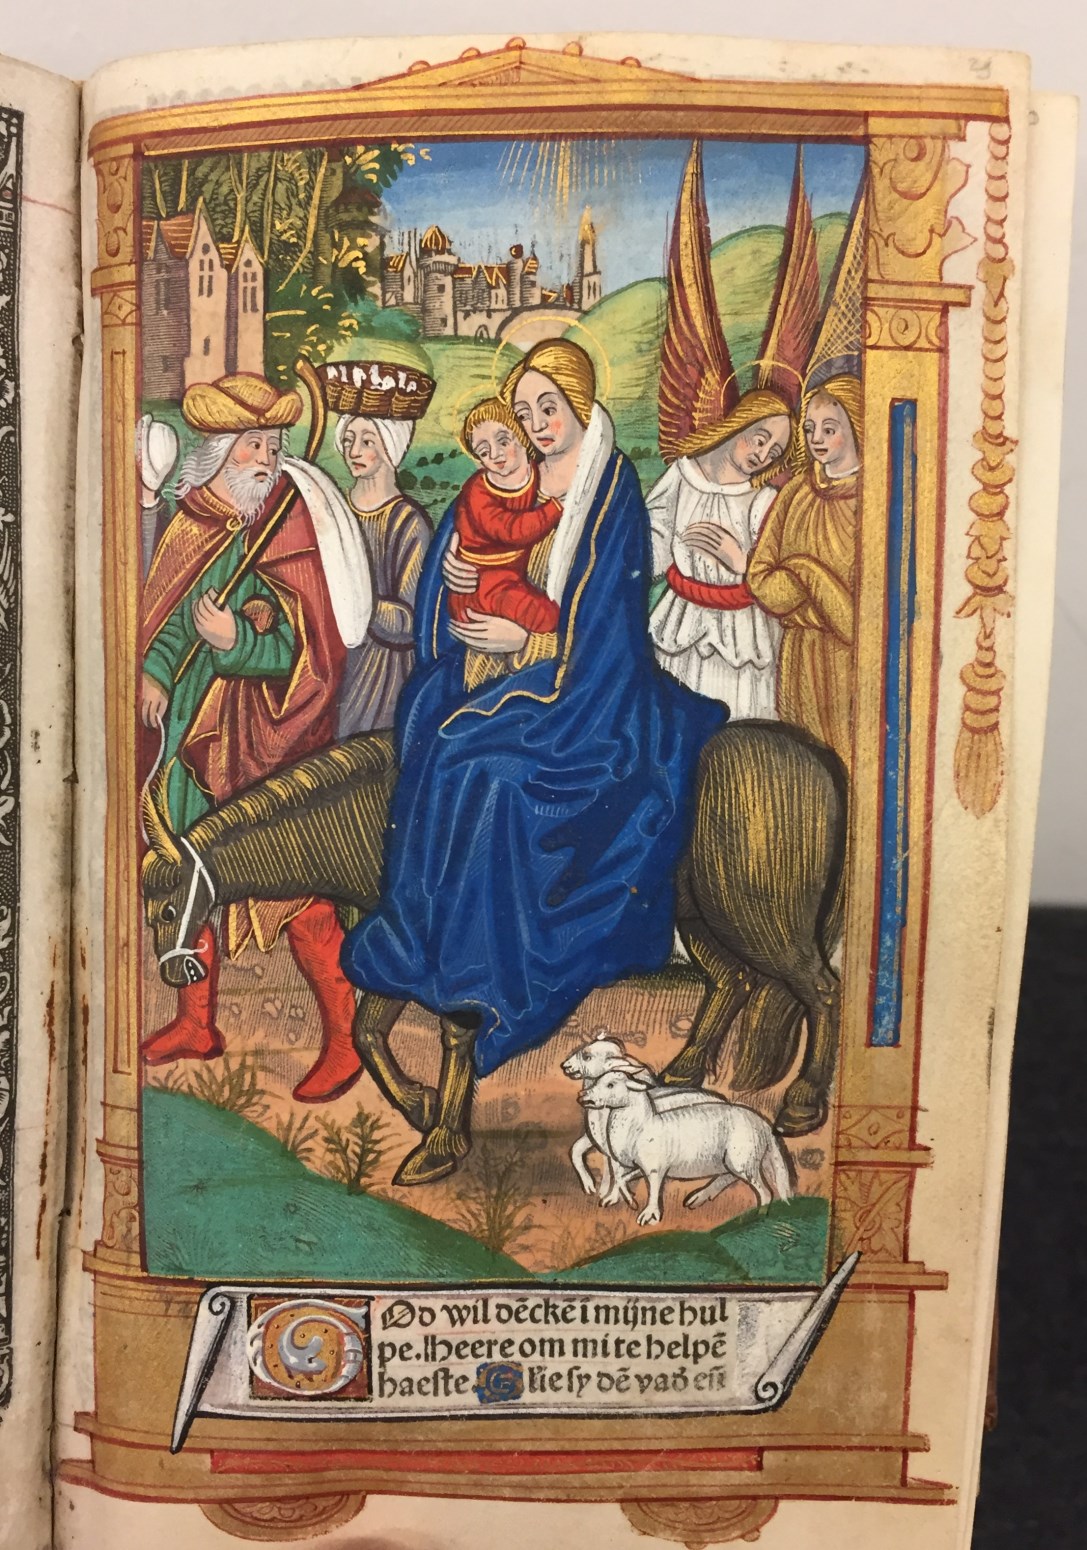 29
GOd wil dēckē ī mijne hul
pe. Iheere om mi te helpē
haeste. Glīe sy dē vad̄ eñ